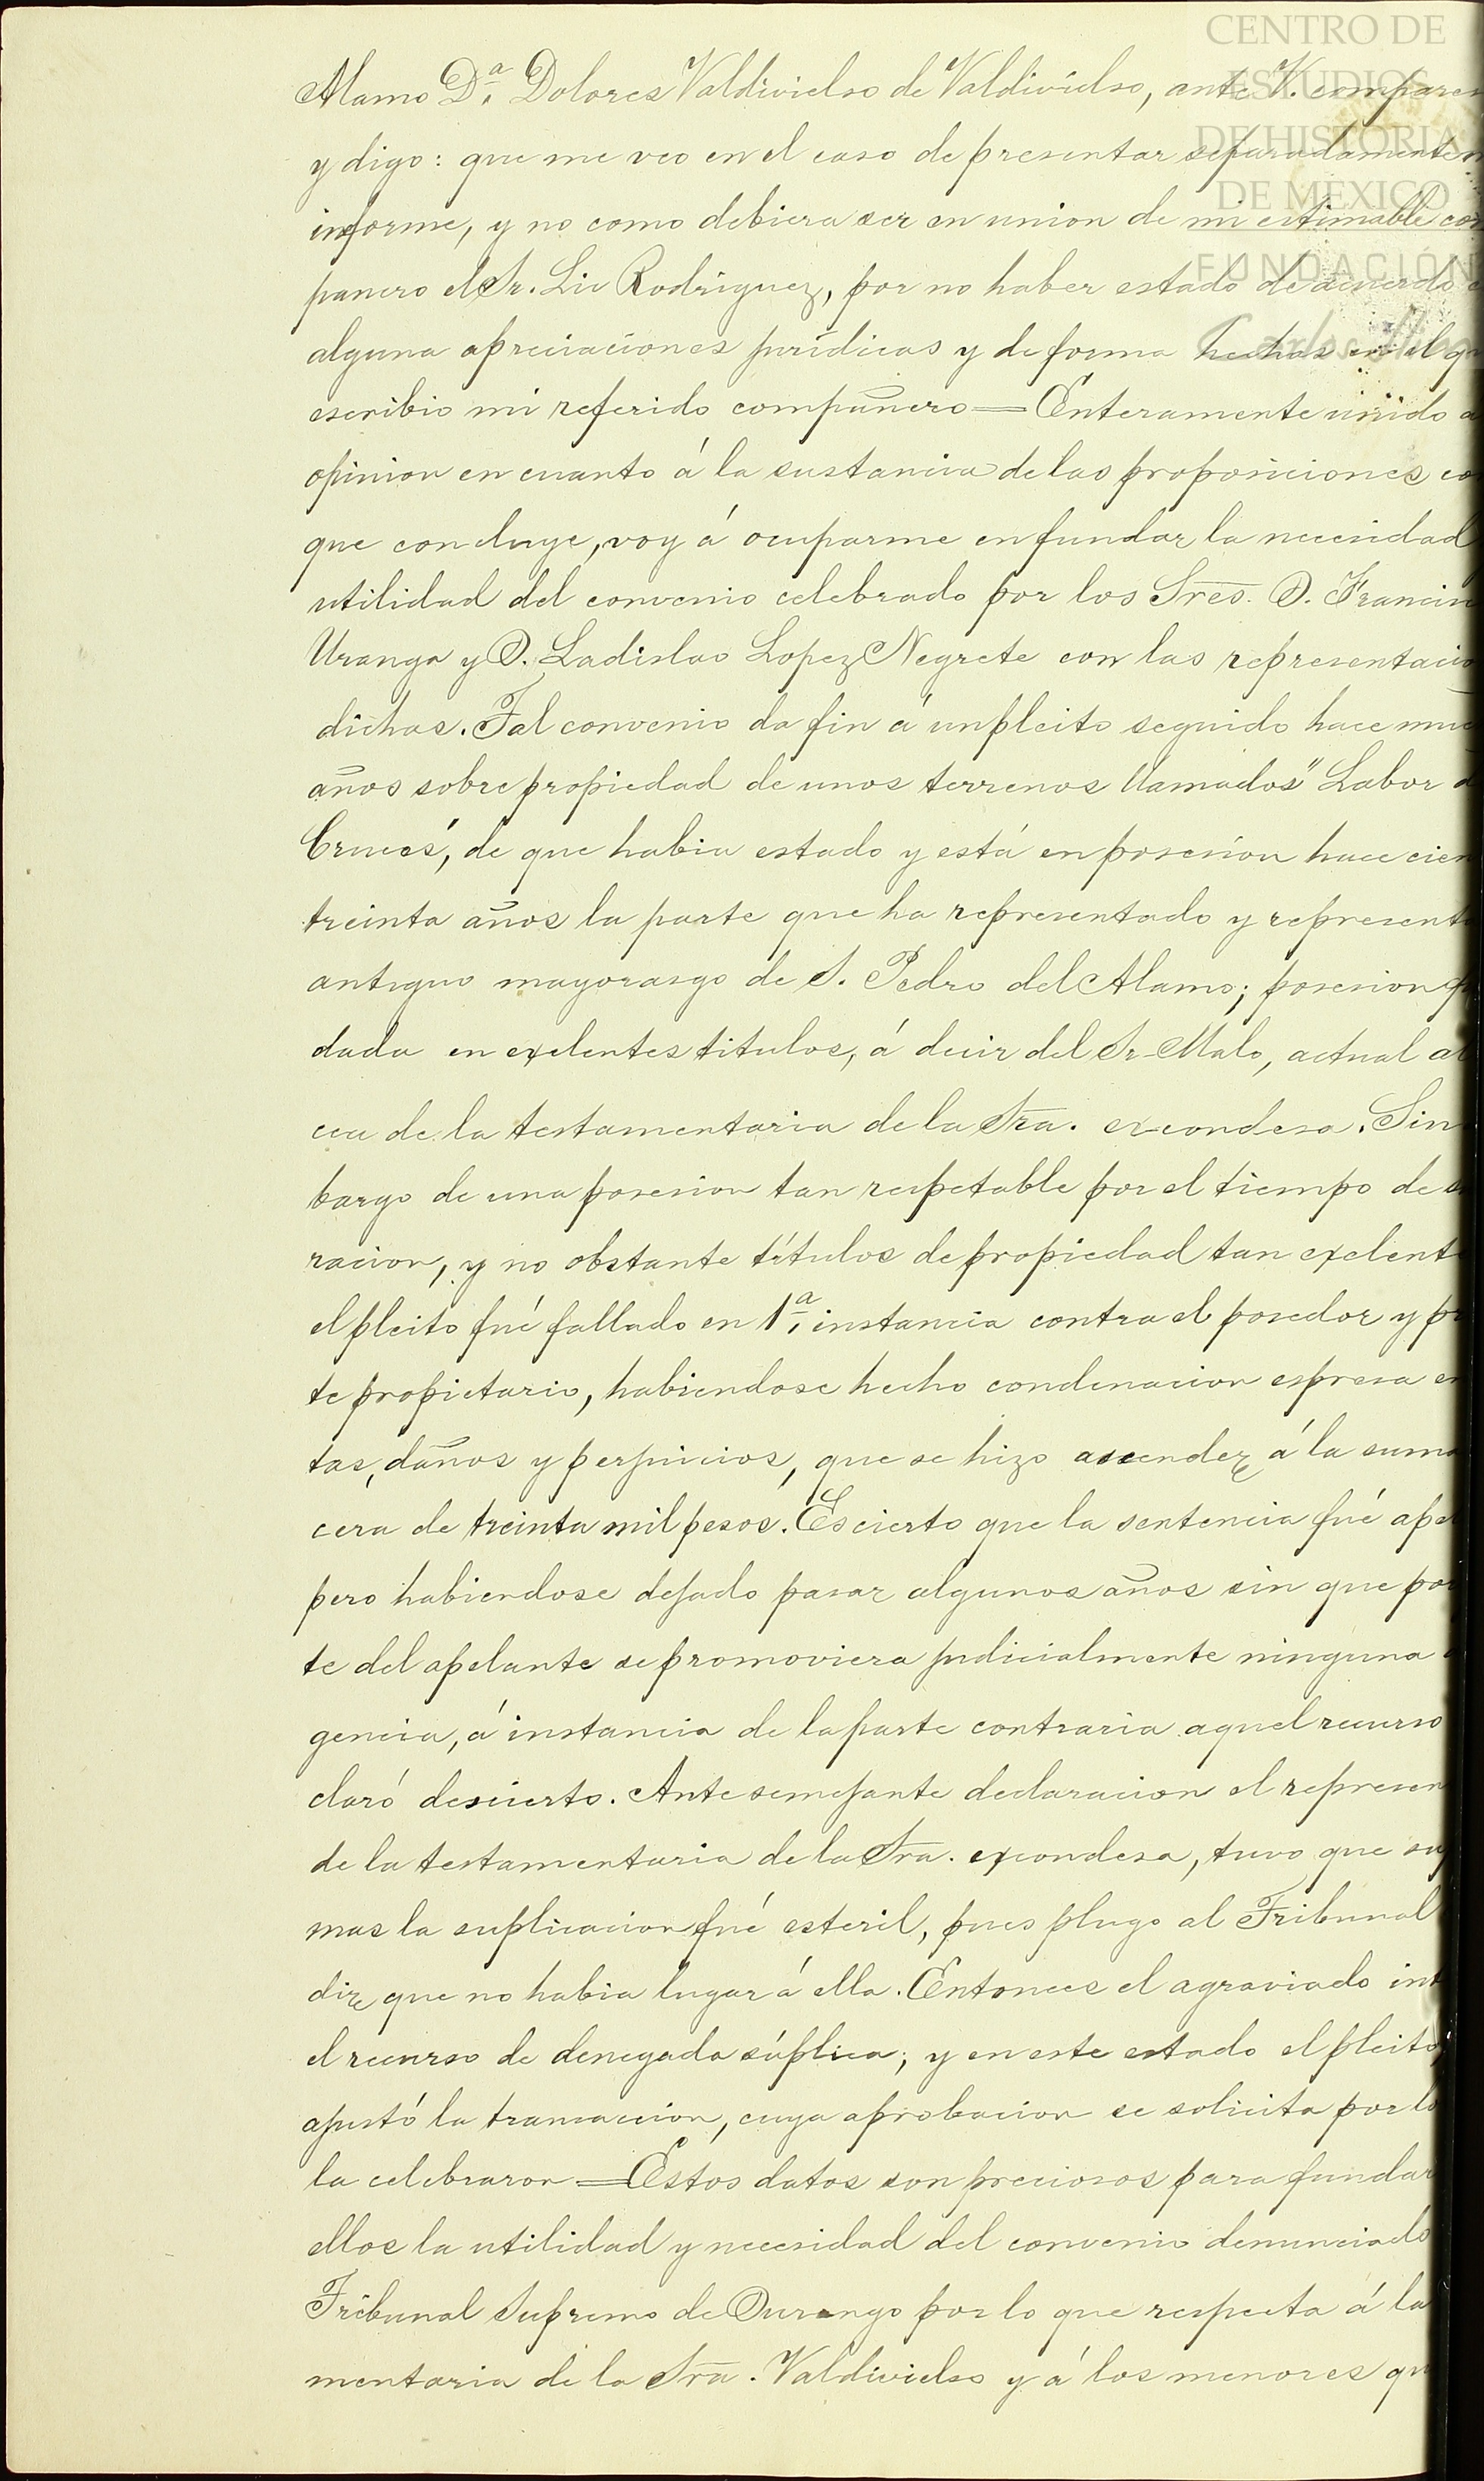 CENTRO DE
ESTUDIOS
DE HISTORIA
DE MEXICO
FUNDACIÓN
Carlos Slim
Alamo D.ª Dolores Valdivielso de Valdivielso, ante V. comparez
y digo: que me veo en el caso de presentar separadamente
informe, y no como debiera ser en union de mi estimable com
pañero el Sr. Lic Rodriguez, por no haber estado de acuerdo
alguna apreciaciones jurídicas y de forma hechas en el qu
escribio mi referido compañero = Enteramente unido a
opinion en cuanto á la sustancia de las proposiciones co
que concluye, voy á ocuparme en fundar la necesidad
utilidad del convenio celebrado por los Sres. D. Francis
Uranga y D. Ladislao Lopez Negrete con las representacio
dichas. Tal convenio da fin á un pleito seguido hace muc
años sobre propiedad de unos terrenos llamados "Labor d
Cruces", de que habia estado y está en posesion hace cien
treinta años la parte que ha representado y represent
antiguo mayorasgo de S. Pedro del Alamo; posesion
dada en exelentes titulos, á decir del Sr Malo, actual al
cea de la testamentaria de la Sra. excondesa. Sin
bargo de una posesion tan respetable por el tiempo de su
racion, y no obstante títulos de propiedad tan exelente
el pleito fué fallado en 1.ª instancia contra el posedor y pr
te propietario, habiendose hecho condenacion espresa en
tas, daños y perjuicios, que se hizo ascender á la suma
cera de treinta mil pesos. Es cierto que la sentencia fué apel
pero habiendose dejado pasar algunos años sin que por
te del apelante se promoviera judicialmente ninguna
gencia, á instancia de la parte contraria aquel recurso
claró desierto. Ante semejante declaracion el represen
de la testamentaria de la Sra. excondesa, tuvo que sup
mas la suplicacion fué esteril, pues plugo al Tribunal
dir que no habia lugar á ella. Entonces el agraviado int
el recurso de denegada súplica; y en este estado el pleito,
ajustó la transaccion, cuya aprobacion se solicita por lo
la celebraron = Estos datos son preciosos para fundar
ellos la utilidad y necesidad del convenio denunciado
Tribunal Supremo de Durango por lo que respecta á la
mentaria de la Sra. Valdivielso y á los menores qu